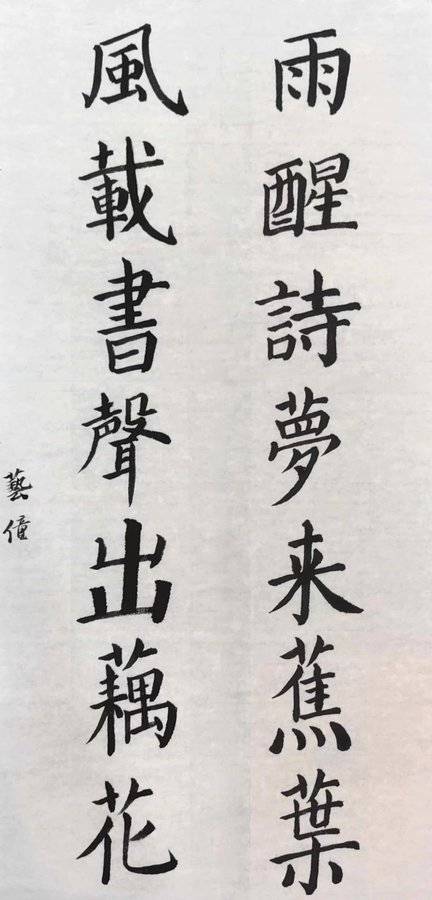 雨醒詩夢来蕉葉
風載書聲出藕花
藝僮